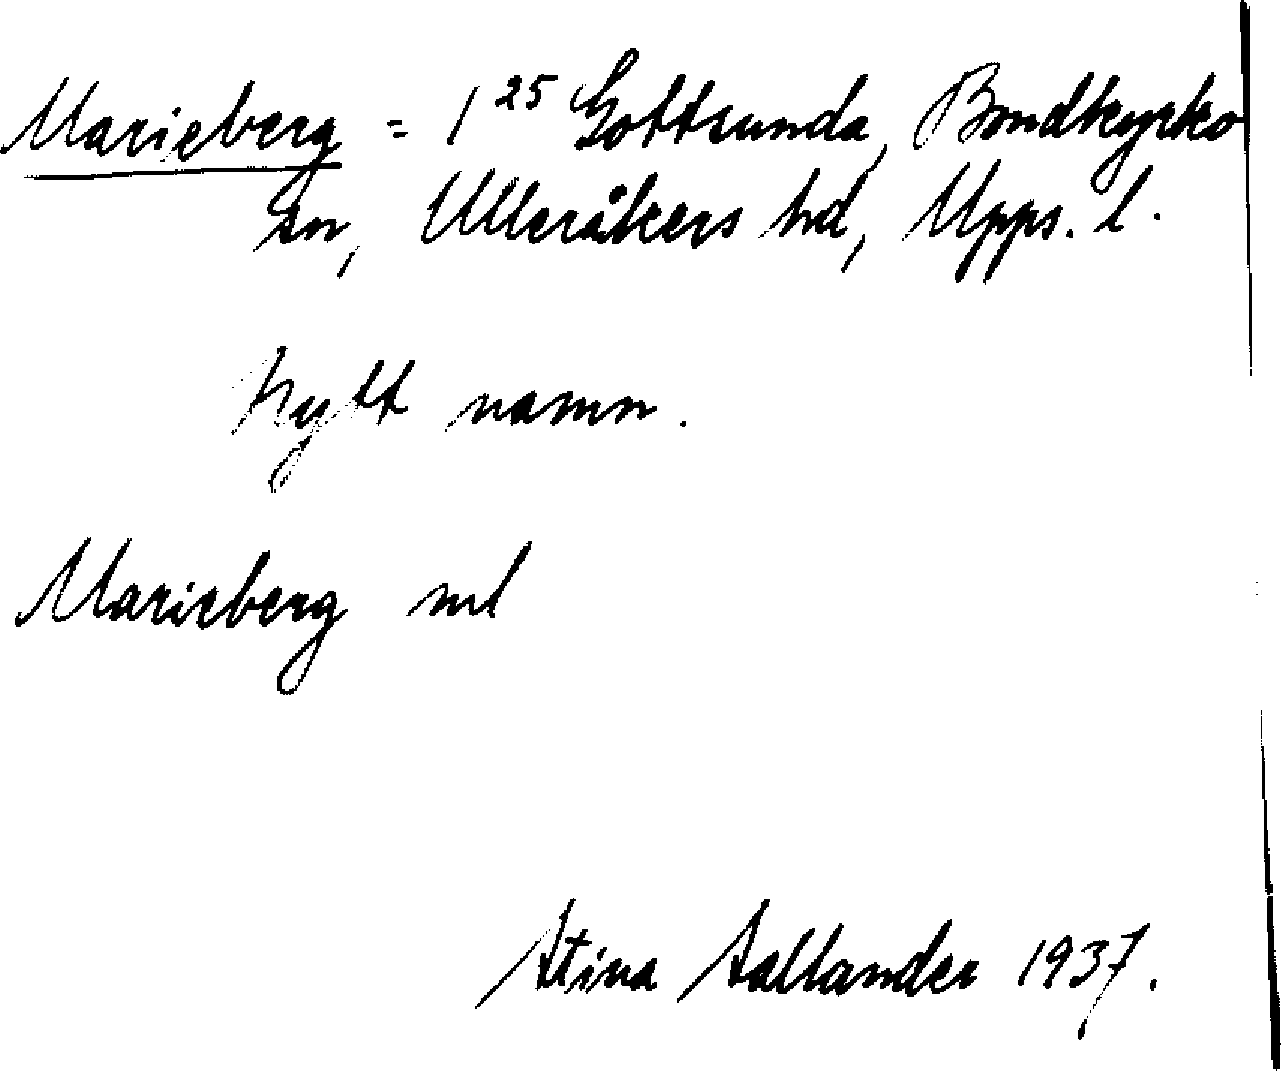 Marieberg = 1²⁵ Gottsunda, Bondkyrko
sn, Ulleråkers hd, Upps. l.
Nytt namn.
Marieberg ml
Stina Sallander 1937.